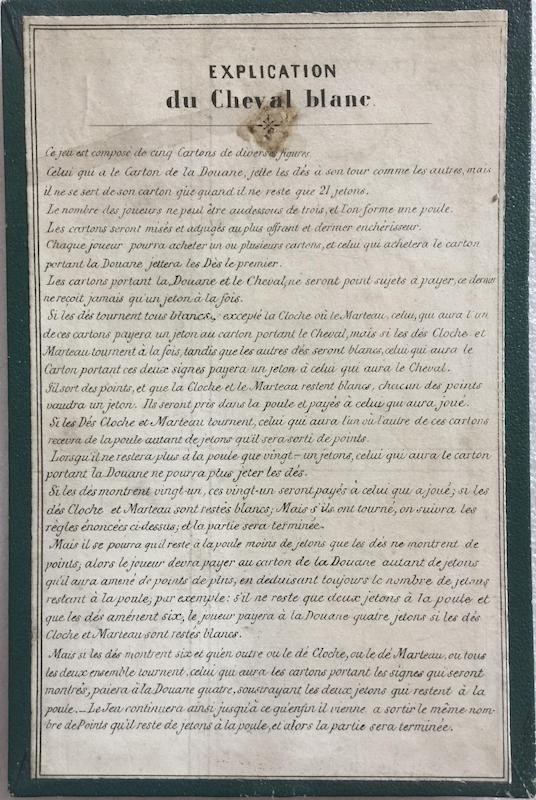 EXPLICATION
du Cheval blanc
Ce jeu est composé de cinq Cartons de diverses figures.
Celui qui a le Carton de la Douane, jette les dés à son tour comme les autres, mais
il ne se sert de son carton que quand il ne reste que 21 jetons.
Le nombre des joueurs ne peut être audessous de trois, et l'on forme une poule.
Les cartons seront misés et adjugés au plus offrant et dernier enchérisseur.
Chaque joueur pourra acheter un ou plusieurs cartons, et celui qui achetera le carton
portant la Douane jettera les Dès le premier.
Les cartons portant la Douane et le Cheval, ne seront point sujets à payer, ce dernier
ne reçoit jamais qu'un jeton à la fois.
Si les dés tournent tous blancs, excepté la Cloche où le Marteau, celui, qui aura l'un
de ces cartons payera un jeton au carton portant le Cheval, mais si les dés Cloche et
Marteau tournent à la fois, tandis que les autres dés seront blancs, celui qui aura le
Carton portant ces deux signes payera un jeton à celui qui aura le Cheval.
S'il sort des points, et que la Cloche et le Marteau restent blancs, chacun des points
vaudra un jeton. Ils seront pris dans la poule et payés à celui qui aura joué.
Si les Dés Cloche et Marteau tournent, celui qui aura l'un où l'autre de ces cartons
recevra de la poule autant de jetons qu'il sera sorti de points.
Lorsqu'il ne restera plus à la poule que vingt-un jetons, celui qui aura le carton
portant la Douane ne pourra plus jeter les dés.
Si les dés montrent vingt-un, ces vingt-un seront payés à celui qui a joué; si les
dés Cloche et Marteau sont restés blancs; Mais s'ils ont tourné, on suivra les
règles énoncées ci-dessus; et la partie sera terminée.
Mais il se pourra qu'il reste à la poule moins de jetons que les dés ne montrent de
points; alors le joueur devra payer au carton de la Douane autant de jetons
qu'il aura amené de points de plus, en deduisant toujours le nombre de jetons
restant à la poule; par exemple: s'il ne reste que deux jetons à la poule et
que les dés amènent six, le joueur payera à la Douane quatre jetons si les dés
Cloche et Marteau sont restés blancs.
Mais si les dés montrent six et qu'en outre ou le dé Cloche, ou le dé Marteau, ou tous
les deux ensemble tournent, celui qui aura les cartons portant les signes qui seront
montrés, paiera à la Douane quatre, soustrayant les deux jetons qui restent à la
poule.—Le Jeu continuera ainsi jusqu'à ce qu'enfin il vienne a sortir le même nom-
bre de Points qu'il reste de jetons à la poule, et alors la partie sera terminée.